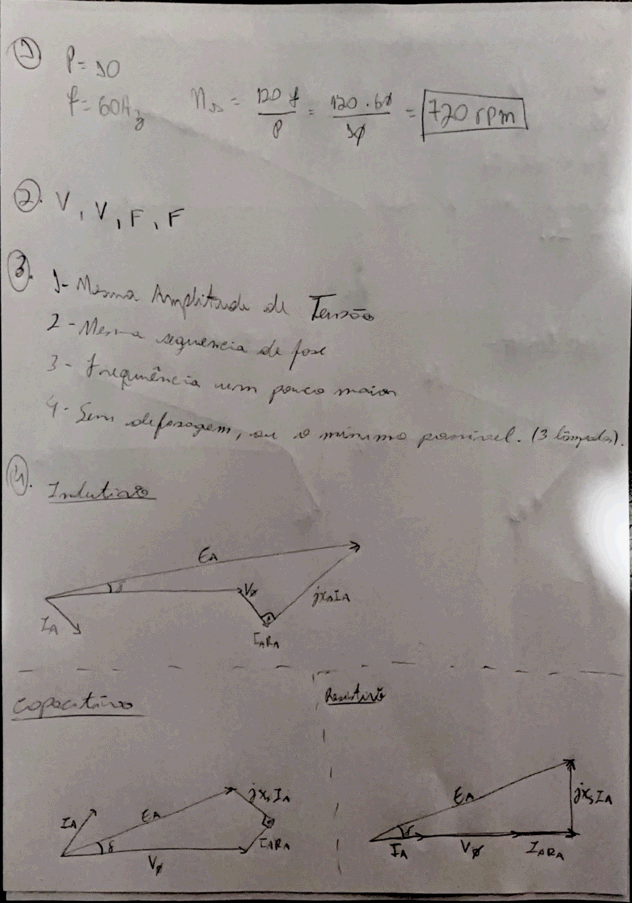 1
P = 10
f = 60Hz   ns = 120 f / P = 120 . 60 / 10 = 720 rpm
2. V, V, F, F
3. 1- Mesma Amplitude de Tensão
2 - Mesma sequencia de fase
3 - frequência um pouco maior
4 - Sem defasagem, ou o minimo possivel. (3 lâmpadas).
4. Indutivo
EA
δ
Vø
jxsIA
IA
IARA
Capacitivo
Resistivo
jxsIA
IA
EA
IARA
δ
Vø
EA
jxsIA
δ
IA
Vø
IARA